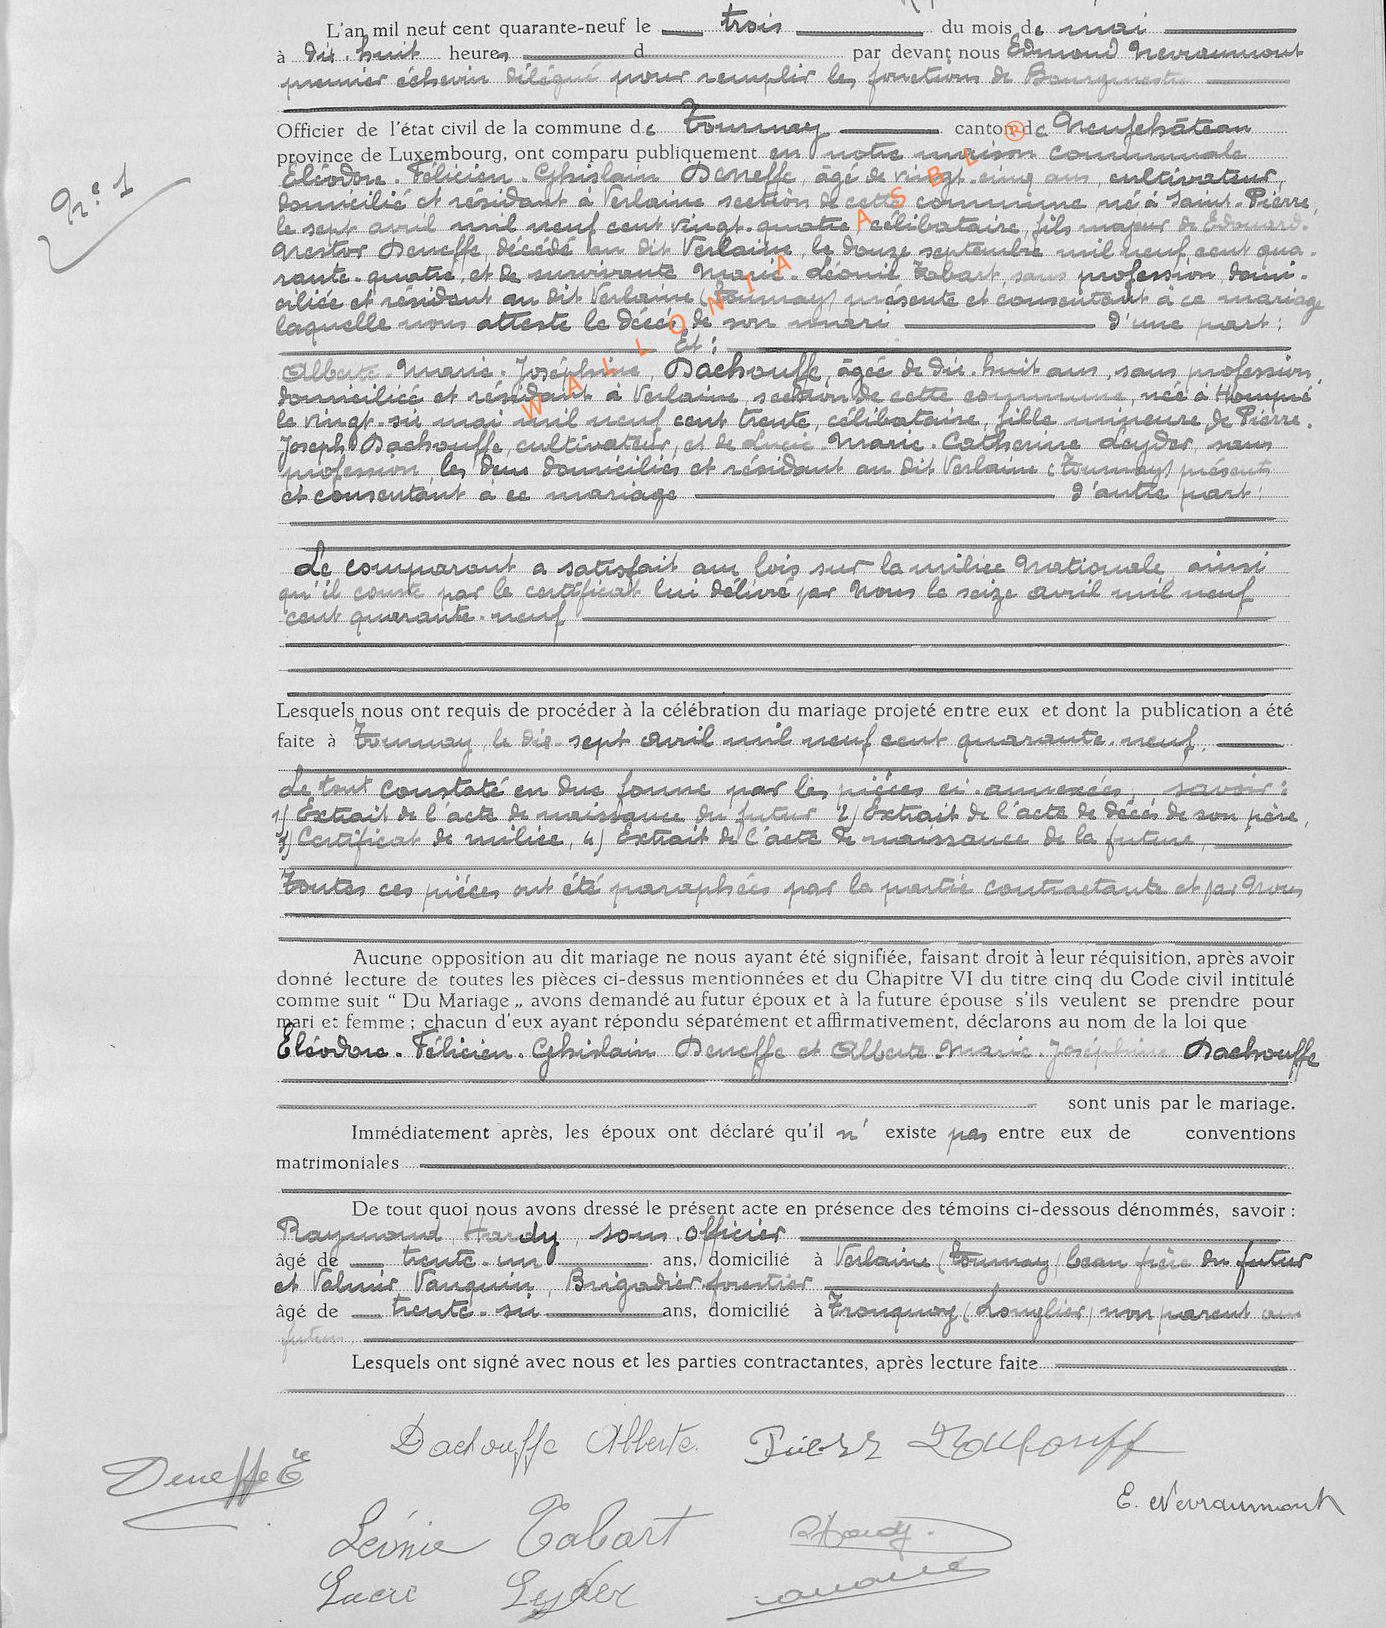 L'an mil neuf cent quarante-neuf le trois du mois de mai
à dix-huit heures d par devant nous Edmond Nevraumont
premier échevin délégué pour remplir les fonctions de Bourgmestre
Officier de l'état civil de la commune de Tournay canton de Neufchâteau
province de Luxembourg, ont comparu publiquement en notre maison communale
N° 1
Eléodore-Félicien-Ghislain Deneffe, âgé de vingt-cinq ans, cultivateur,
domicilié et résidant à Verlaine section de cette commune, né à Saint-Pierre,
le sept avril mil neuf cent vingt-quatre, célibataire, fils majeur de Edouard-
Nestor Deneffe, décédé au dit Verlaine, le douze septembre mil neuf cent qua-
rante-quatre, et de survivante Marie-Léonie Tabart, sans profession, domi-
ciliée et résidant au dit Verlaine (Tournay) présente et consentant à ce mariage
laquelle nous atteste le décès de son mari d'une part;
Et:
Alberte-Marie-Joséphine Dachouffe, âgée de dix-huit ans, sans profession,
domiciliée et résidant à Verlaine, section de cette commune, née à Hompré
le vingt-six mai mil neuf cent trente, célibataire, fille mineure de Pierre-
Joseph Dachouffe, cultivateur, et de Lucie-Marie-Catherine Leyder, sans
profession, les deux domiciliés et résidant au dit Verlaine (Tournay) présents
et consentant à ce mariage d'autre part;
WALLONIA ASBL ®
Le comparant a satisfait aux lois sur la milice Nationale ainsi
qu'il conste par le certificat lui délivré par Nous le seize avril mil neuf
cent quarante-neuf
Lesquels nous ont requis de procéder à la célébration du mariage projeté entre eux et dont la publication a été
faite à Tournay, le dix-sept avril mil neuf cent quarante-neuf,
Le tout constaté en due forme par les pièces ci-annexées, savoir:
1) Extrait de l'acte de naissance du futur 2) Extrait de l'acte de décès de son père,
3) Certificat de milice, 4) Extrait de l'acte de naissance de la future,
Toutes ces pièces ont été paraphées par la partie contractante et par Nous
Aucune opposition au dit mariage ne nous ayant été signifiée, faisant droit à leur réquisition, après avoir
donné lecture de toutes les pièces ci-dessus mentionnées et du Chapitre VI du titre cinq du Code civil intitulé
comme suit " Du Mariage „ avons demandé au futur époux et à la future épouse s'ils veulent se prendre pour
mari et femme ; chacun d'eux ayant répondu séparément et affirmativement, déclarons au nom de la loi que
Eléodore-Félicien-Ghislain Deneffe et Alberte-Marie-Joséphine Dachouffe
sont unis par le mariage.
Immédiatement après, les époux ont déclaré qu'il n' existe pas entre eux de conventions
matrimoniales
De tout quoi nous avons dressé le présent acte en présence des témoins ci-dessous dénommés, savoir :
Raymond Hardy, sous officier
âgé de trente-un ans, domicilié à Verlaine (Tournay) beau frère du futur
et Valmir Vanquin, Brigadier forestier
âgé de trente-six ans, domicilié à Tronquoy (Longlier) non parent au
futur
Lesquels ont signé avec nous et les parties contractantes, après lecture faite
Dachouffe Alberte. Pierre Dachouff
Deneffe E
E. Nevraumont
Léonie Tabart RHardy.
Lucie Leyder